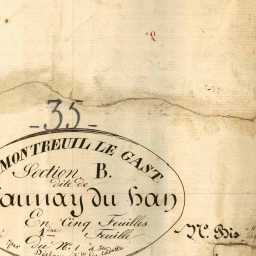 - 35 -
MONTREUIL LE GAST
Section B.
dite de
aunay du han
En Cinq Feuilles
Feuille
Du N.º 1
N. Bis